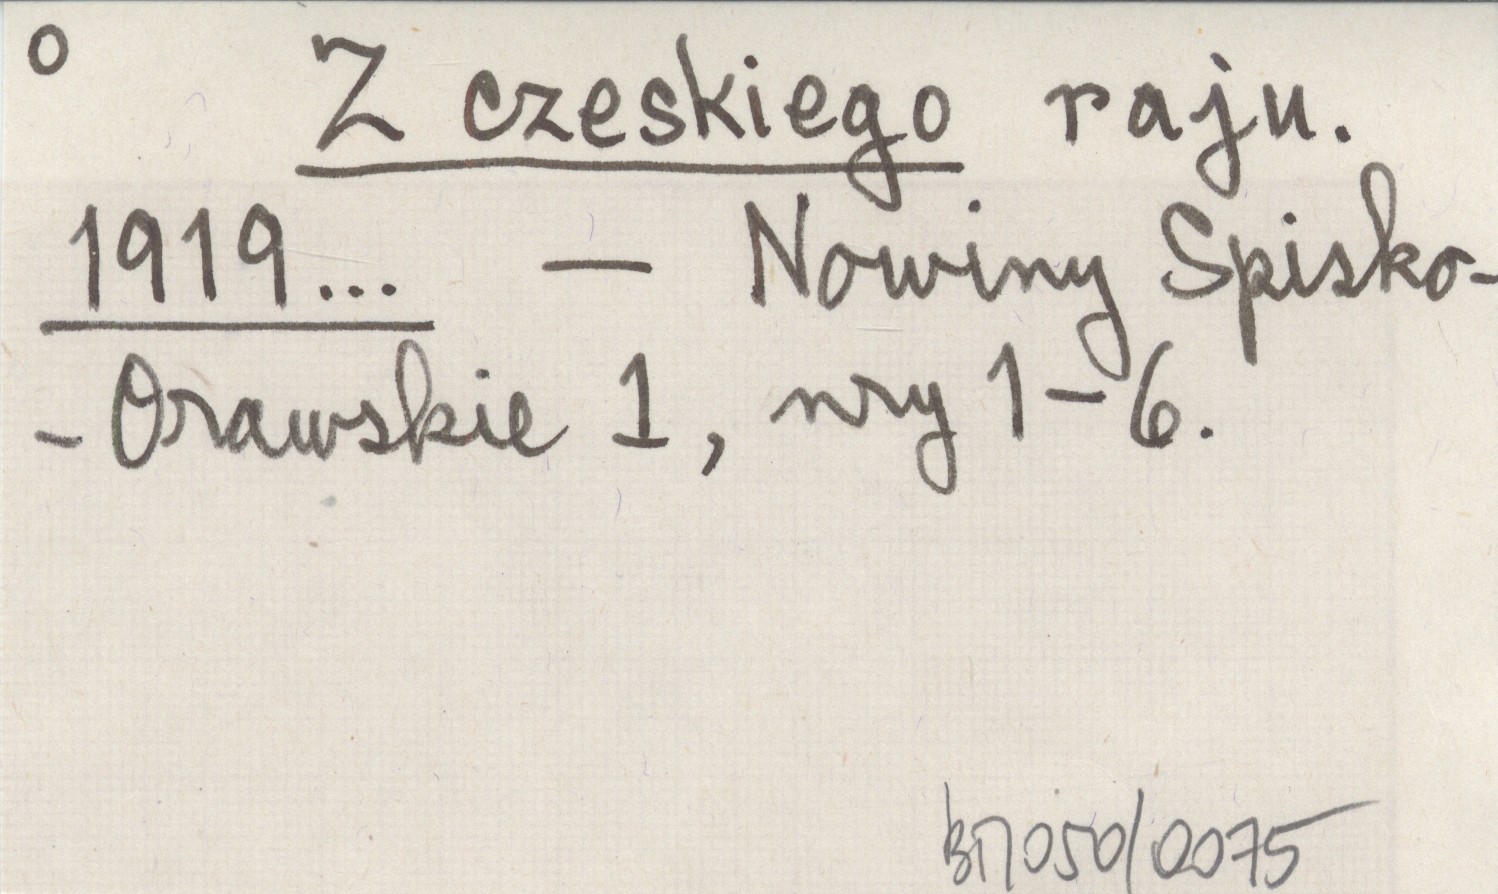 o Z czeskiego raju.
1919... — Nowiny Spisko-
-Orawskie 1, nry 1-6.
050/0075